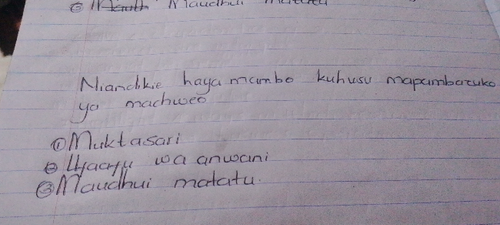 Maudhui matatu
Niandikie haya mambo kuhusu mapambazuko
ya machweo
① Muktasari
② Ufaafu wa anwani
③ Maudhui matatu.